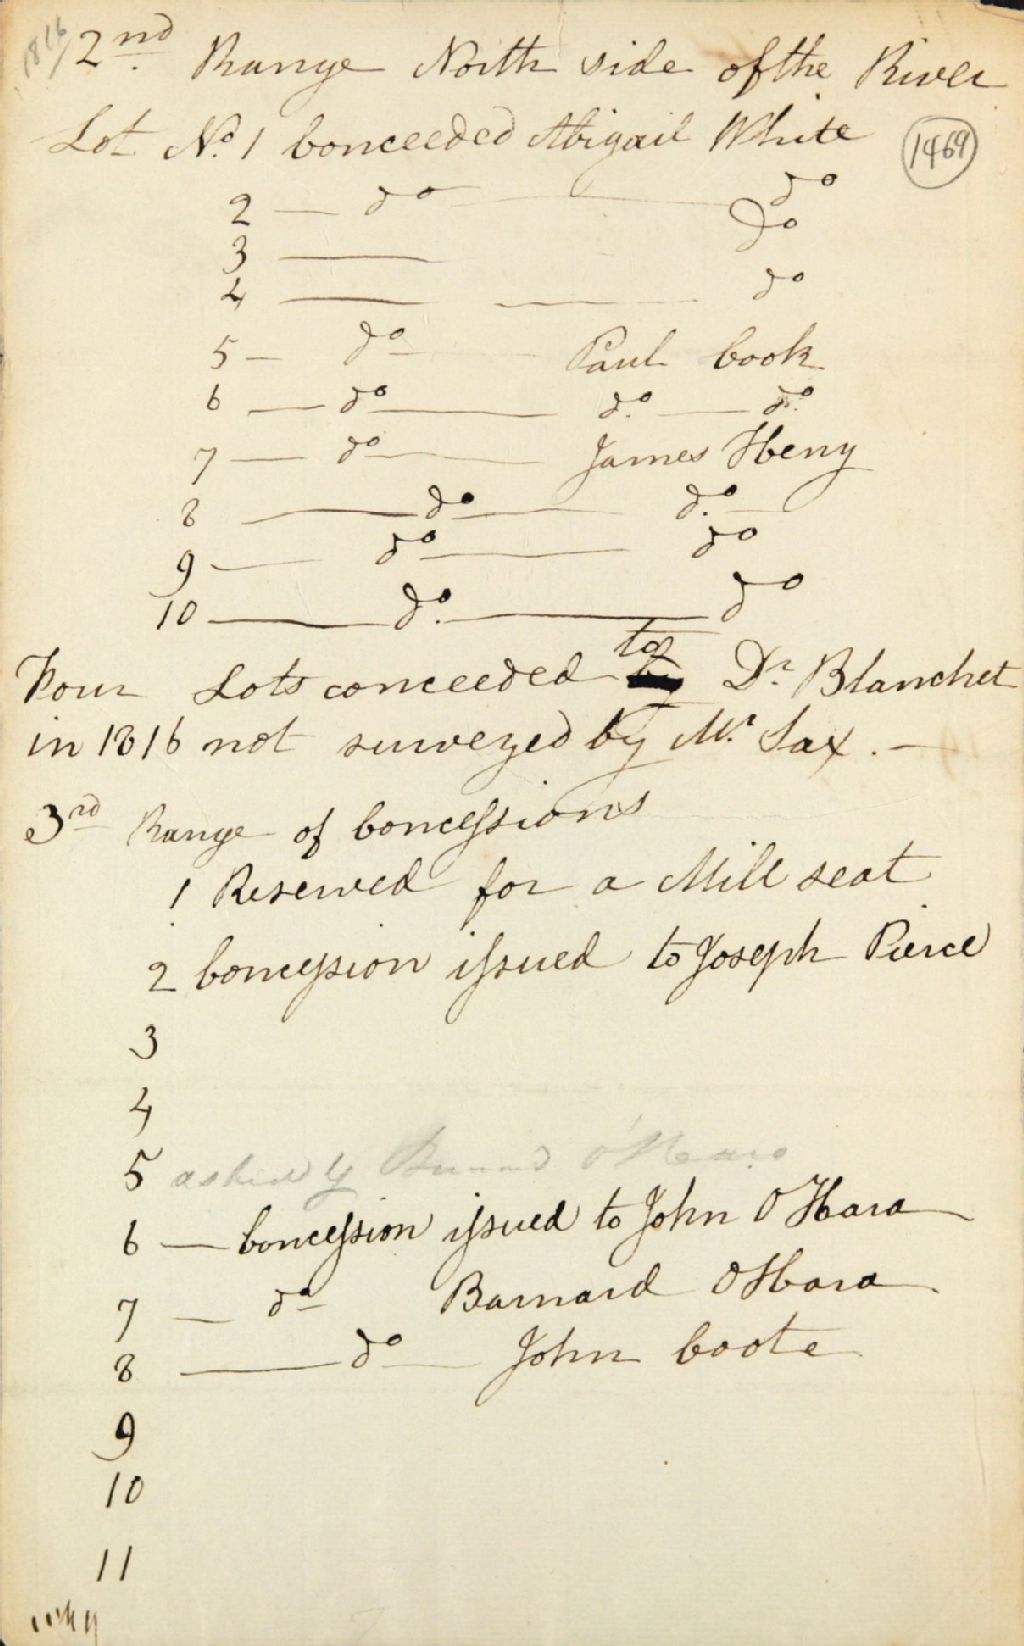 1816
2nd Range North side of the River
Lot No. 1 Conceeded Abigail White
1469
2 — do — do
3 — Do
4 — — do
5 — do — Paul Cook
6 — do — do. — do.
7 — do — James Heny
8 — do — do. —
9 — do — do
10 — do. — do
Four Lots conceeded to Dr. Blanchet
in 1816 not surveyed by Mr. Sax. —
3rd Range of Concessions
1 Reserved for a Mill seat
2 Concession issued to Joseph Pierce
3
4
5 asked by Barnard O'Hara
6 — Concession issued to John O Hara
7 — do Barnard O Hara
8 — do — John Coote
9
10
11